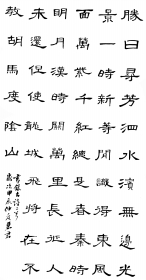 勝日尋芳泗水濱無邊光
景一時新等閒識得東風
面萬紫千紅總是春秦時
明月漢時關萬里長征人
未還但使龍城飛將在不
教胡馬度陰山